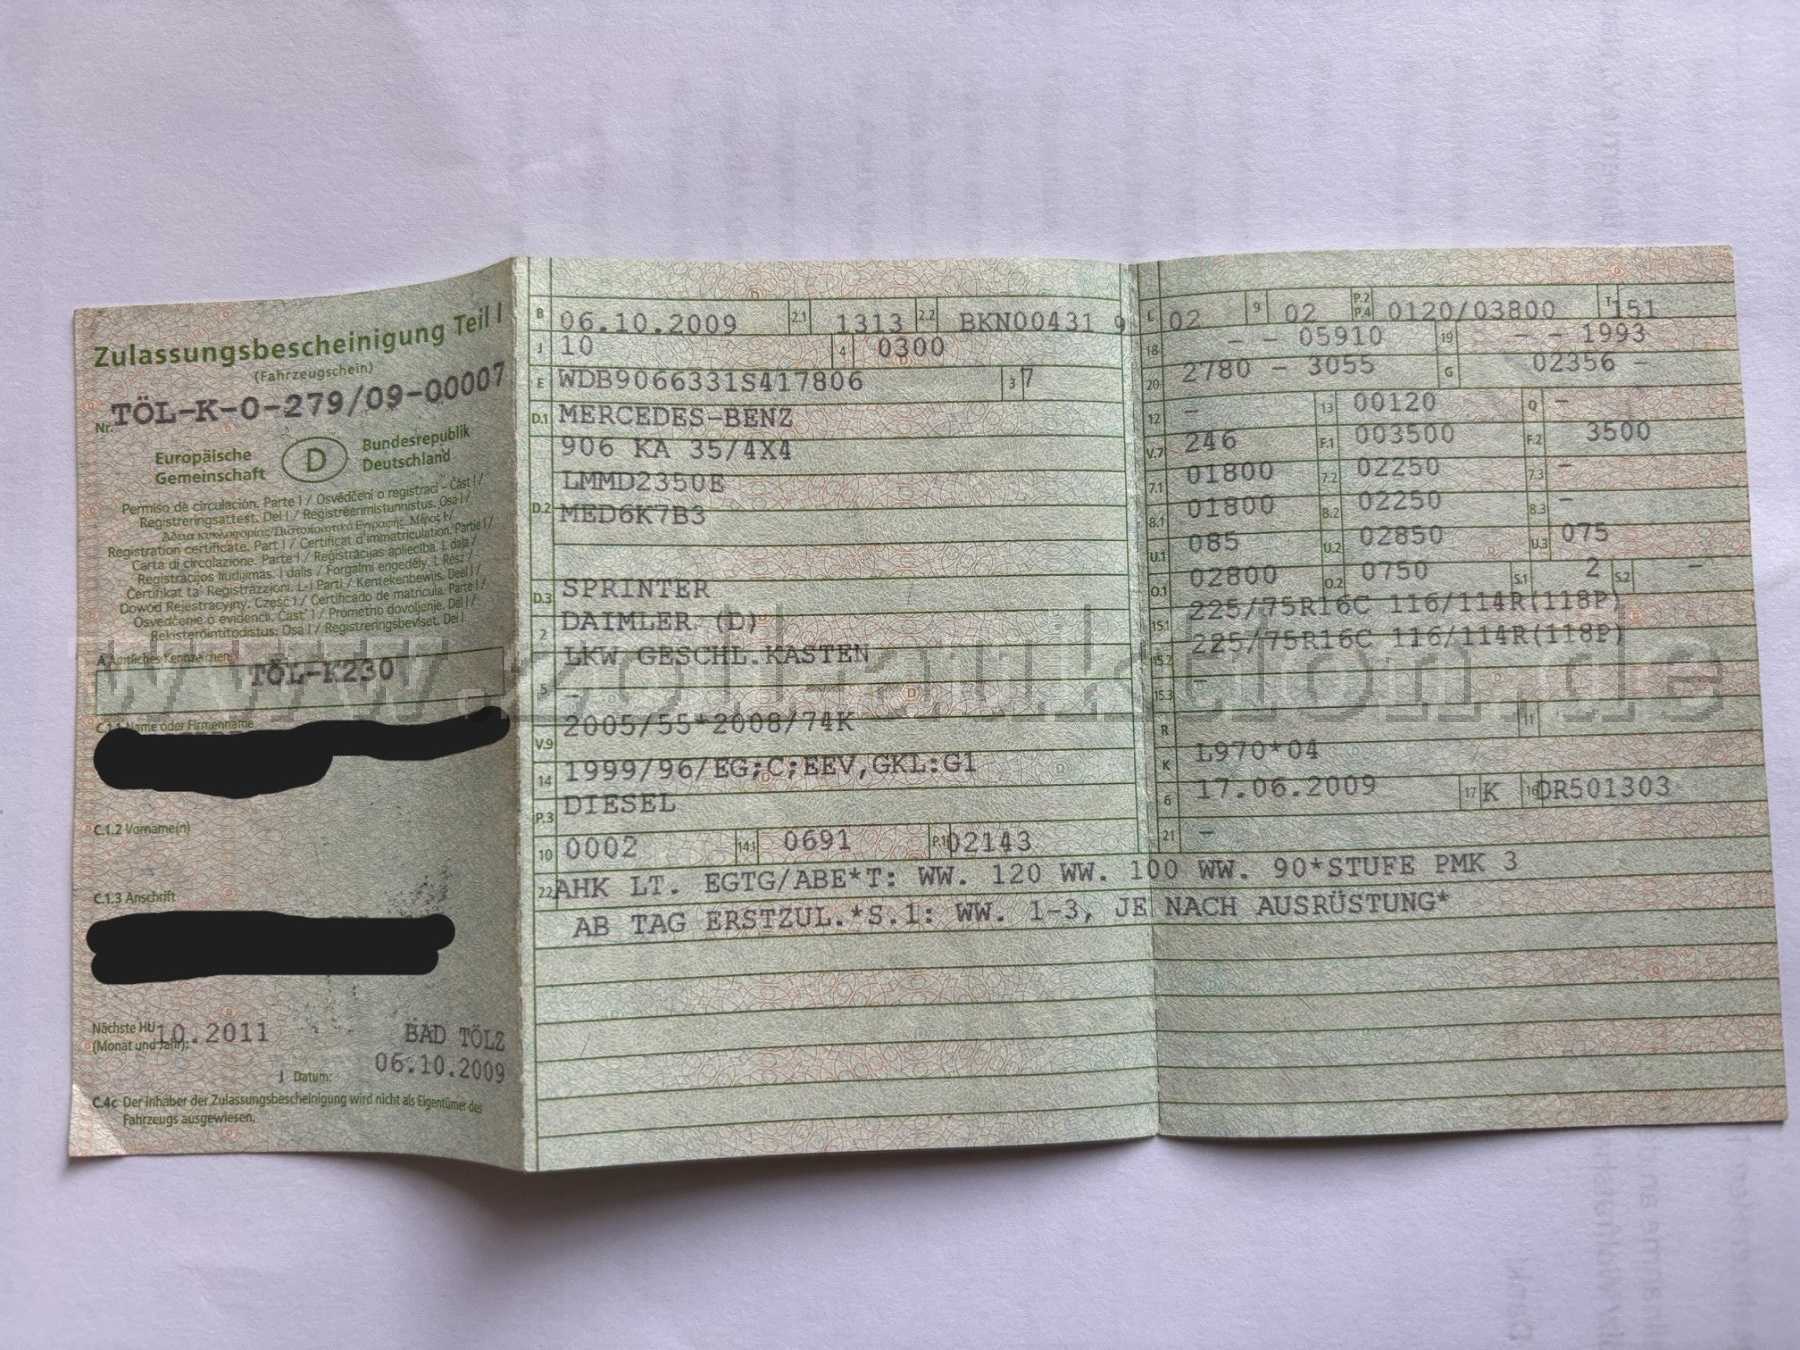 Zulassungsbescheinigung Teil I
(Fahrzeugschein)
Nr. TÖL-K-0-279/09-00007
Europäische Gemeinschaft
D
Bundesrepublik Deutschland
Permiso de circulación. Parte I / Osvědčení o registraci - Část I /
Registreringsattest. Del I / Registreerimistunnistus. Osa I /
Άδεια κυκλοφορίας/Πιστοποιητικό Εγγραφής. Μέρος I /
Registration certificate. Part I / Certificat d'immatriculation. Partie I /
Carta di circolazione. Parte I / Reģistrācijas apliecība. I. daļa /
Registracijos liudijimas. I dalis / Forgalmi engedély. I. Rész /
Ċertifikat ta' Reġistrazzjoni. L-I Parti / Kentekenbewijs. Deel I /
Dowód Rejestracyjny. Część I / Certificado de matrícula. Parte I /
Osvedčenie o evidencii. Časť I / Prometno dovoljenje. Del I /
Rekisteröintitodistus. Osa I / Registreringsbeviset. Del I
A Amtliches Kennzeichen
TÖL-K230
C.1.1 Name oder Firmenname
C.1.2 Vorname(n)
C.1.3 Anschrift
Nächste HU (Monat und Jahr): 10.2011
BAD TÖLZ
I Datum: 06.10.2009
C.4c Der Inhaber der Zulassungsbescheinigung wird nicht als Eigentümer des
Fahrzeugs ausgewiesen.
B 06.10.2009 2.1 1313 2.2 BKN00431 9
J 10 4 0300
E WDB9066331S417806 3 7
D.1 MERCEDES-BENZ
906 KA 35/4X4
LMMD2350E
D.2 MED6K7B3
D.3 SPRINTER
2 DAIMLER (D)
LKW GESCHL.KASTEN
5 -
2005/55*2008/74K
V.9
14 1999/96/EG;C;EEV,GKL:G1
P.3 DIESEL
10 0002 14.1 0691 P.1 02143
L 02 9 02 P.2 P.4 0120/03800 T 151
18 - - 05910 19 - - 1993
20 2780 - 3055 G 02356 -
12 - 13 00120 Q -
V.7 246 F.1 003500 F.2 3500
7.1 01800 7.2 02250 7.3 -
8.1 01800 8.2 02250 8.3 -
U.1 085 U.2 02850 U.3 075
O.1 02800 O.2 0750 S.1 2 S.2 -
15.1 225/75R16C 116/114R(118P)
15.2 225/75R16C 116/114R(118P)
15.3 -
R 11
K L970*04
6 17.06.2009 17 K 16 DR501303
21 -
22 AHK LT. EGTG/ABE*T: WW. 120 WW. 100 WW. 90*STUFE PMK 3
AB TAG ERSTZUL.*S.1: WW. 1-3, JE NACH AUSRÜSTUNG*
www.zoll-auktion.de